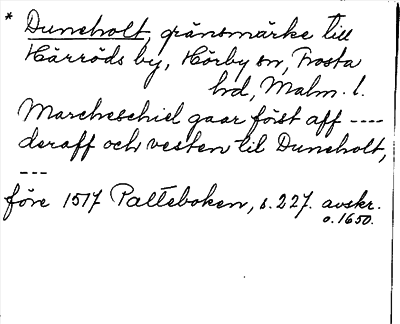 * Duneholt, gränsmärke till
Härröds by, Hörby sn, Frosta
hd, Malm. l.
Marcheschiel gaar först aff ----
deraff och vesten til Duneholt,
---
före 1517 Palteboken, s. 227. avskr.
o. 1650.